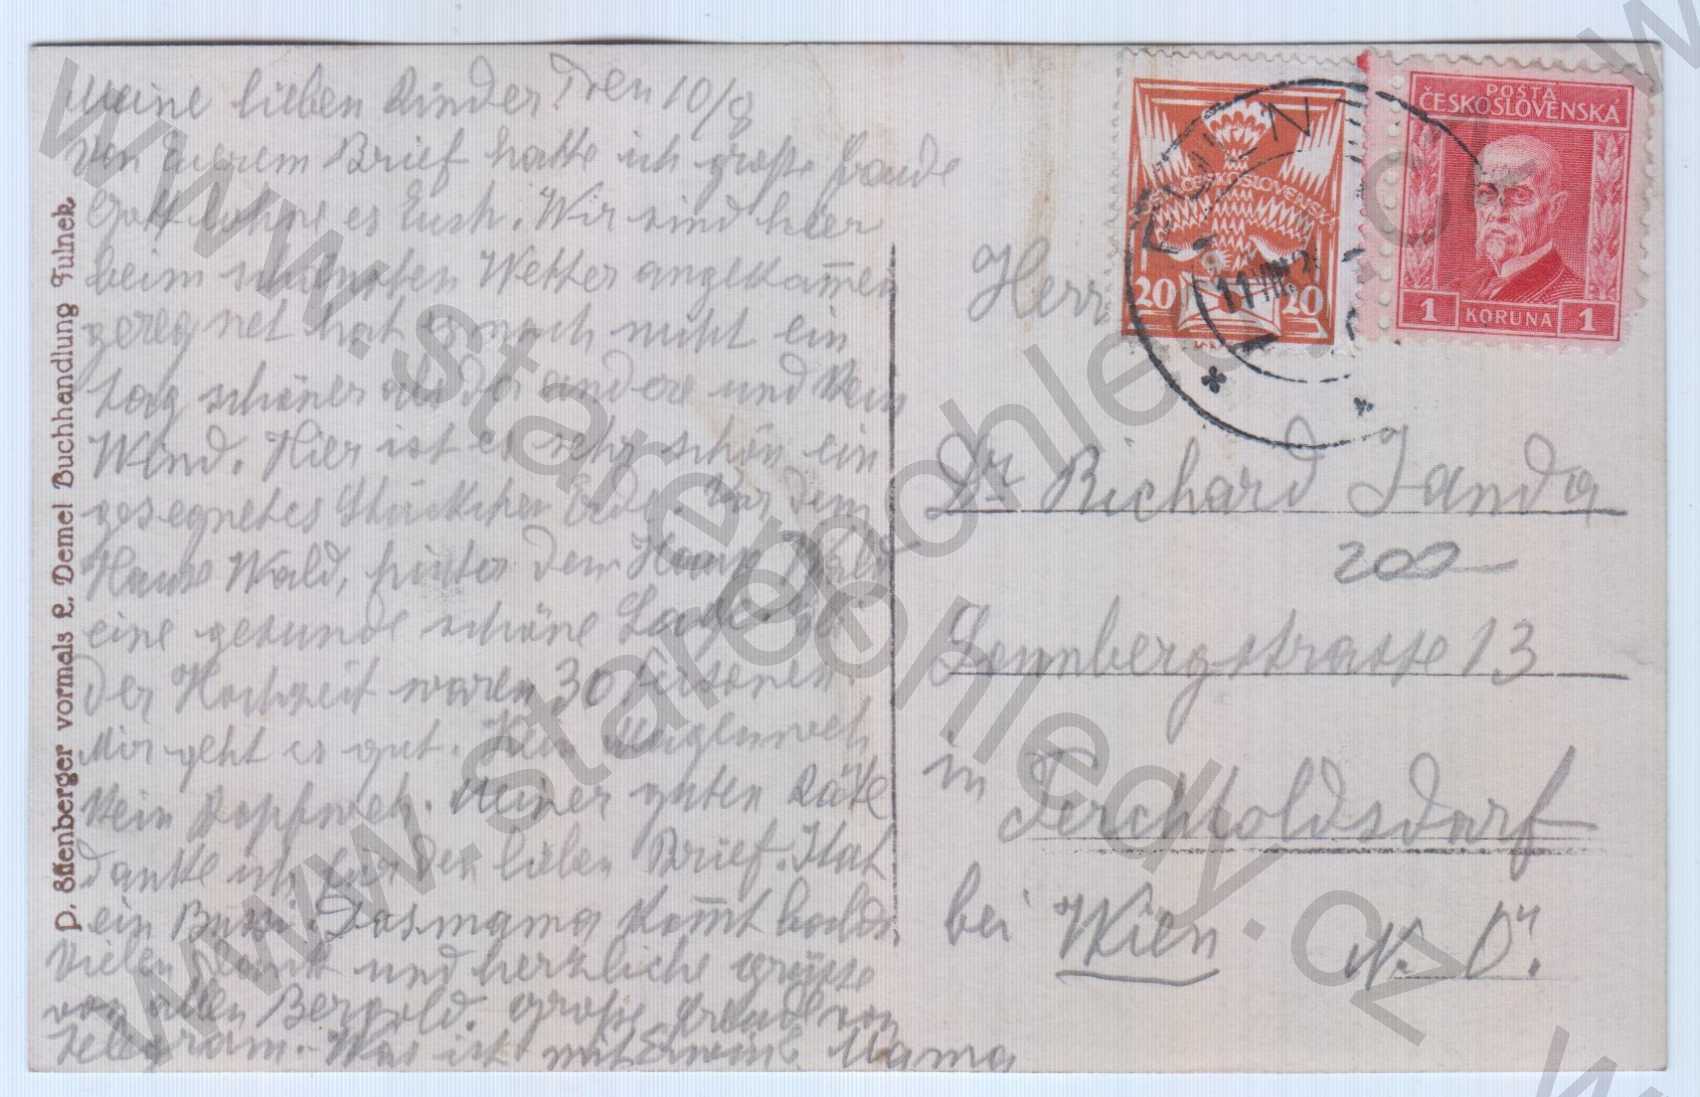 Meine lieben Kinder! den 10/8
Von Eurem Brief hatte ich große Freude
Gott lohne es Euch. Wir sind hier
beim schönsten Wetter angekom̅en
geregnet hat es noch nicht ein
Tag schöner als der andere und kein
Wind. Hier ist es sehr schön ein
gesegnetes Stückchen Erde. Vor dem
Haus Wald, hinter dem Haus Wald
eine gesunde schöne Lage. Bei
der Hochzeit waren 30 Personen
Mir geht es gut. Kein Magenweh
kein Kopfweh. Meiner guten Käte
danke ich für den lieben Brief. Hat
ein Bussi. Grosmama kom̅t bald.
Vielen Dank und herzliche grüsse
von allen Bergold. große Freude von
Telegram. Was ist mit Erwin? Mama
D. Effenberger vormals L. Demel Buchhandlung Fulnek
FULN
11 VIII
POŠTA
ČESKOSLOVENSKÁ
1 KORUNA 1
ČESKOSLOVENSKÁ
20 20
Herr
Dr Richard Janda
200
Sonnbergstrasse 13
in Perchtoldsdorf
bei Wien N. Ö.
www.starepohledy.cz
www.starepohledy.cz